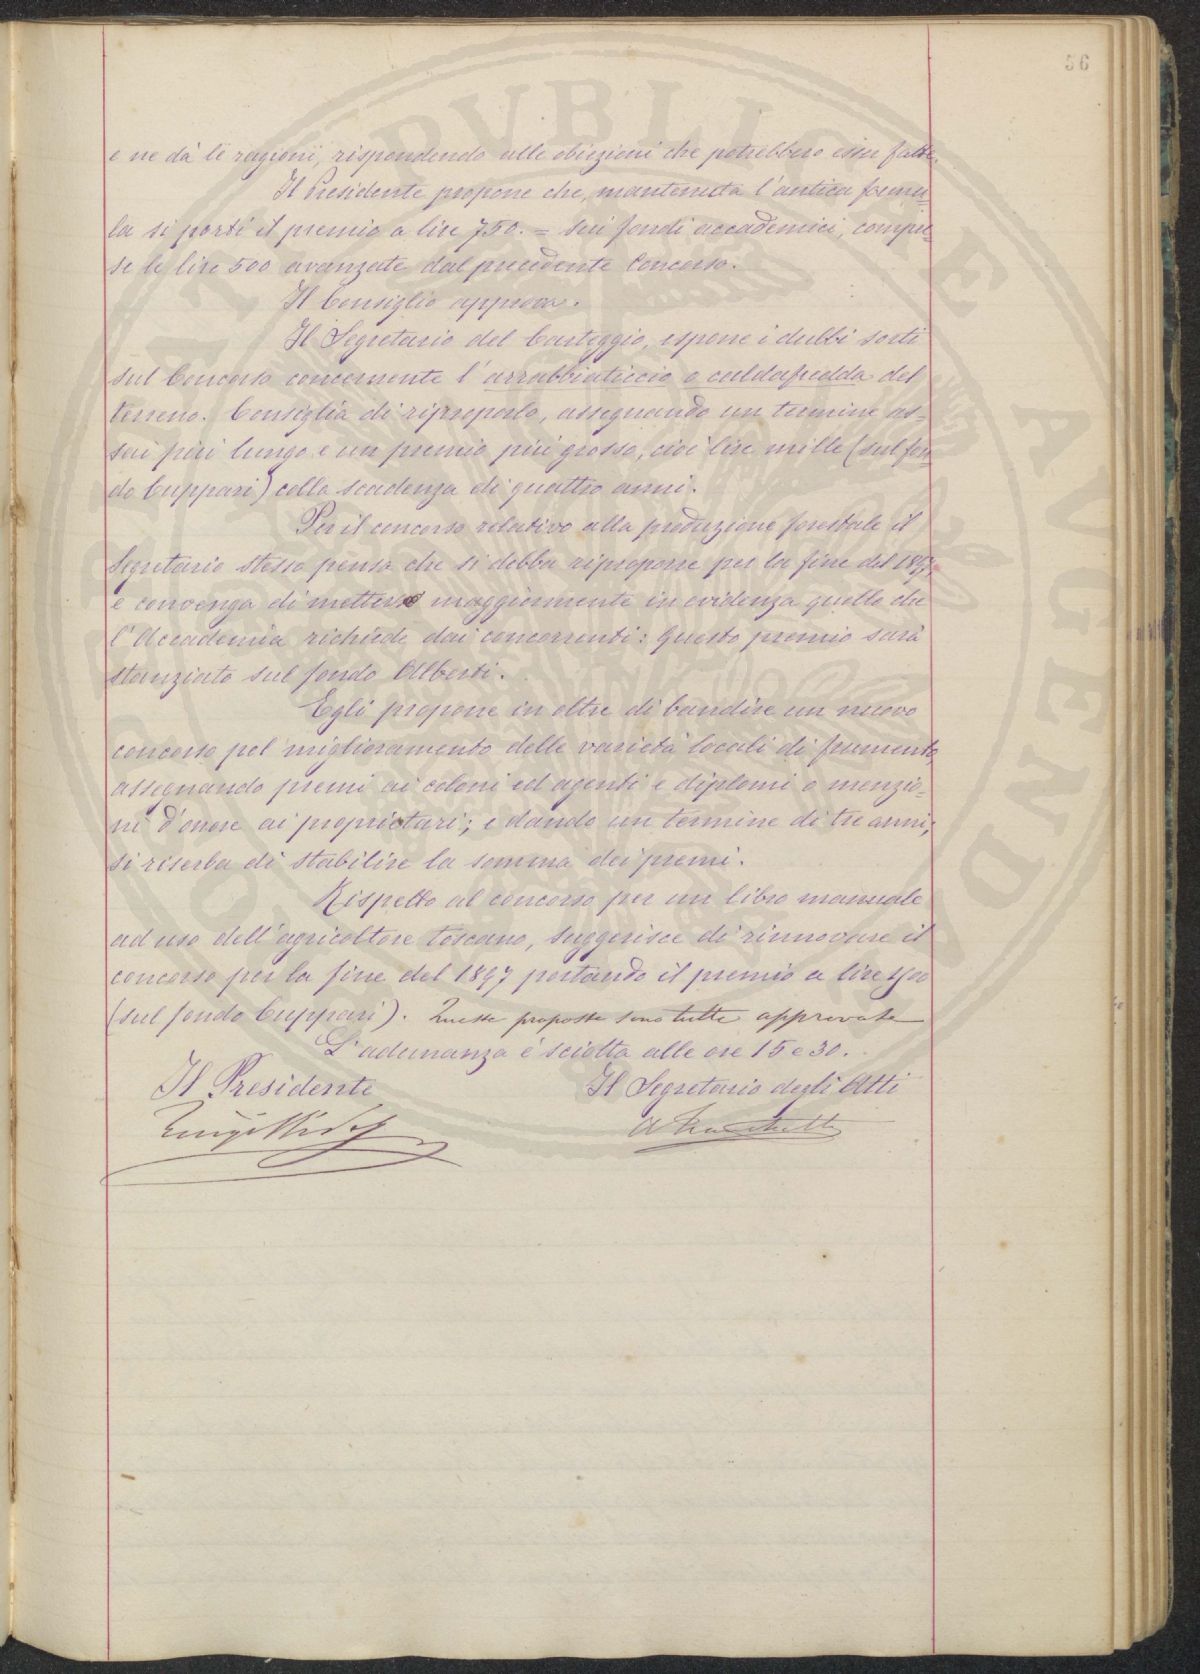 56
e ne dà le ragioni, rispondendo alle obiezioni che potrebbero esser fatte.
Il Presidente propone che, mantenuta l'antica formu=
la si porti il premio a lire 750. = sui fondi accademici, compre=
se le lire 500 avanzate dal precedente Concorso.
Il Consiglio approva.
Il Segretario del Carteggio, espone i dubbi sorti
sul Concorso concernente l'arrabbiaticcio o caldafredda del
terreno. Consiglia di riproporlo, assegnando un termine as=
sai più lungo e un premio più grosso, cioè lire mille (sul fon=
do Cuppari) colla scadenza di quattro anni.
Per il concorso relativo alla produzione forestale il
Segretario stesso pensa che si debba riproporre per la fine del 1897,
e convenga di mettere maggiormente in evidenza quello che
l'Accademia richiede dai concorrenti: Questo premio sarà
stanziato sul fondo Alberti.
Egli propone in oltre di bandire un nuovo
concorso pel miglioramento delle varietà locali di frumento,
assegnando premi ai coloni ed agenti e diplomi o menzio=
ni d'onore ai proprietari; e dando un termine di tre anni;
si riserba di stabilire la somma dei premi.
Rispetto al concorso per un libro manuale
ad uso dell'agricoltore toscano, suggerisce di rinnovare il
concorso per la fine del 1897 portando il premio a lire
(sul fondo Cuppari). Queste proposte sono tutte approvate
L'adunanza è sciolta alle ore 15 e 30.
Il Presidente Il Segretario degli Atti
PVBLICAE AVGENDAE